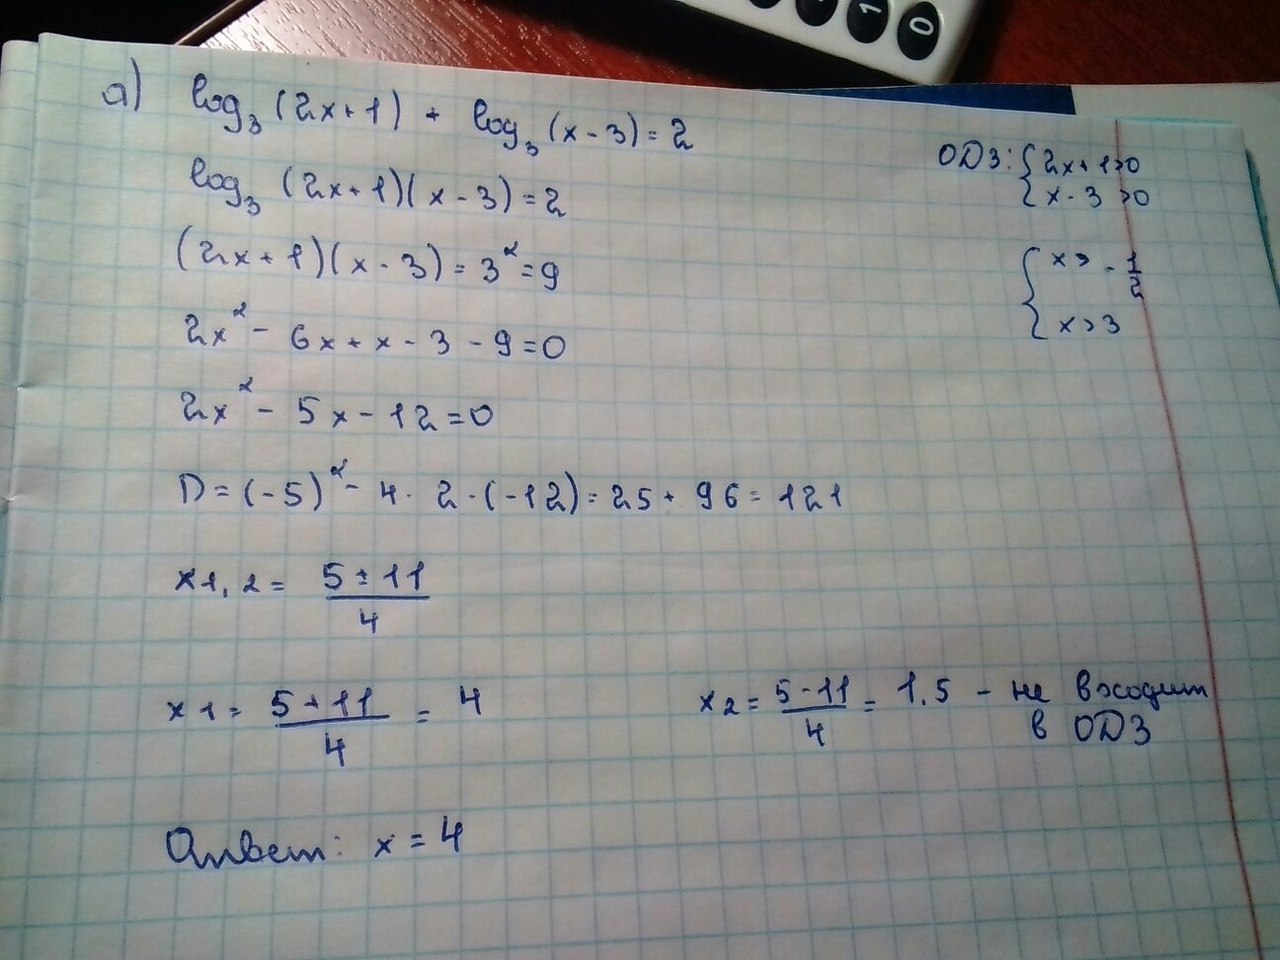 а) log₃(2x+1) + log₃(x-3) = 2
ОДЗ: { 2x+1>0
x-3>0
log₃(2x+1)(x-3) = 2
(2x+1)(x-3) = 3² = 9
{ x> -1/2
x>3
2x² - 6x + x - 3 - 9 = 0
2x² - 5x - 12 = 0
D = (-5)² - 4 · 2 · (-12) = 25 + 96 = 121
x1,2 = (5 ± 11)/4
x1 = (5+11)/4 = 4
x2 = (5-11)/4 = 1.5 - не входит
в ОДЗ
Ответ: x = 4
1 0